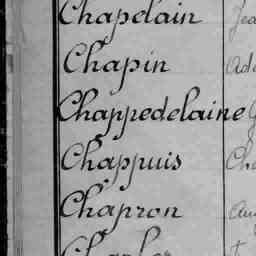 Chapelain
Chapin
Chappedelaine
Chappuis
Chapron